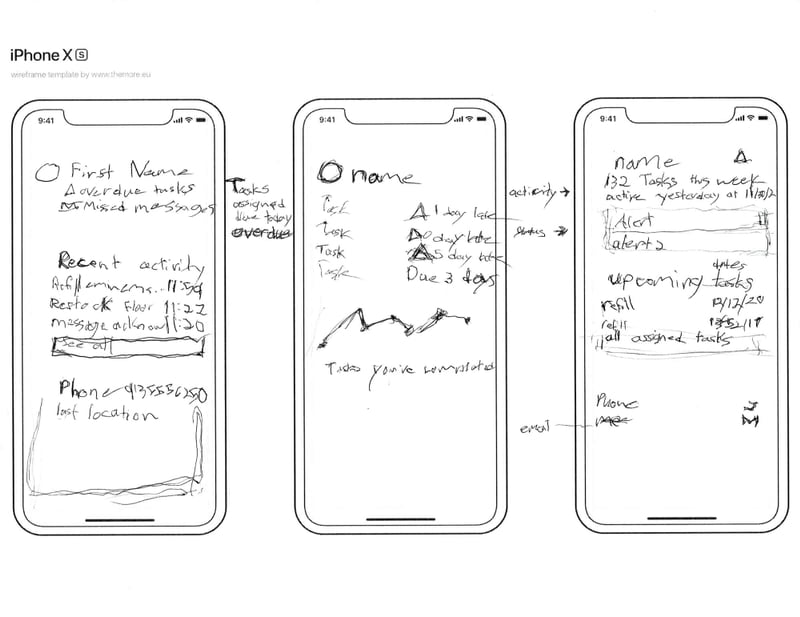 iPhone XS
wireframe template by www.themore.eu
9:41
First Name
overdue tasks
Missed messages
Recent activity
Refill
Restock Floor 11:22
message acknow 11:20
see all
Phone
last location
Tasks
assigned
due today
overdue
9:41
name
Task
1 day late
Task
day late
Task
5 day late
Task
Due 3 days
Tasks you've completed
activity
status
9:41
name
132 Tasks this week
active yesterday at
Alert
alert 2
dates
upcoming tasks
refill
12/12/20
refill
all assigned tasks
Phone
email